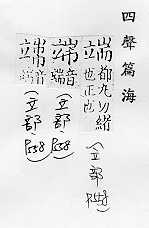 四聲篇海
端都丸切緒
也正也
(立部 P558)
端音
端
(立部 P558)
端音
端
(立部 P558)